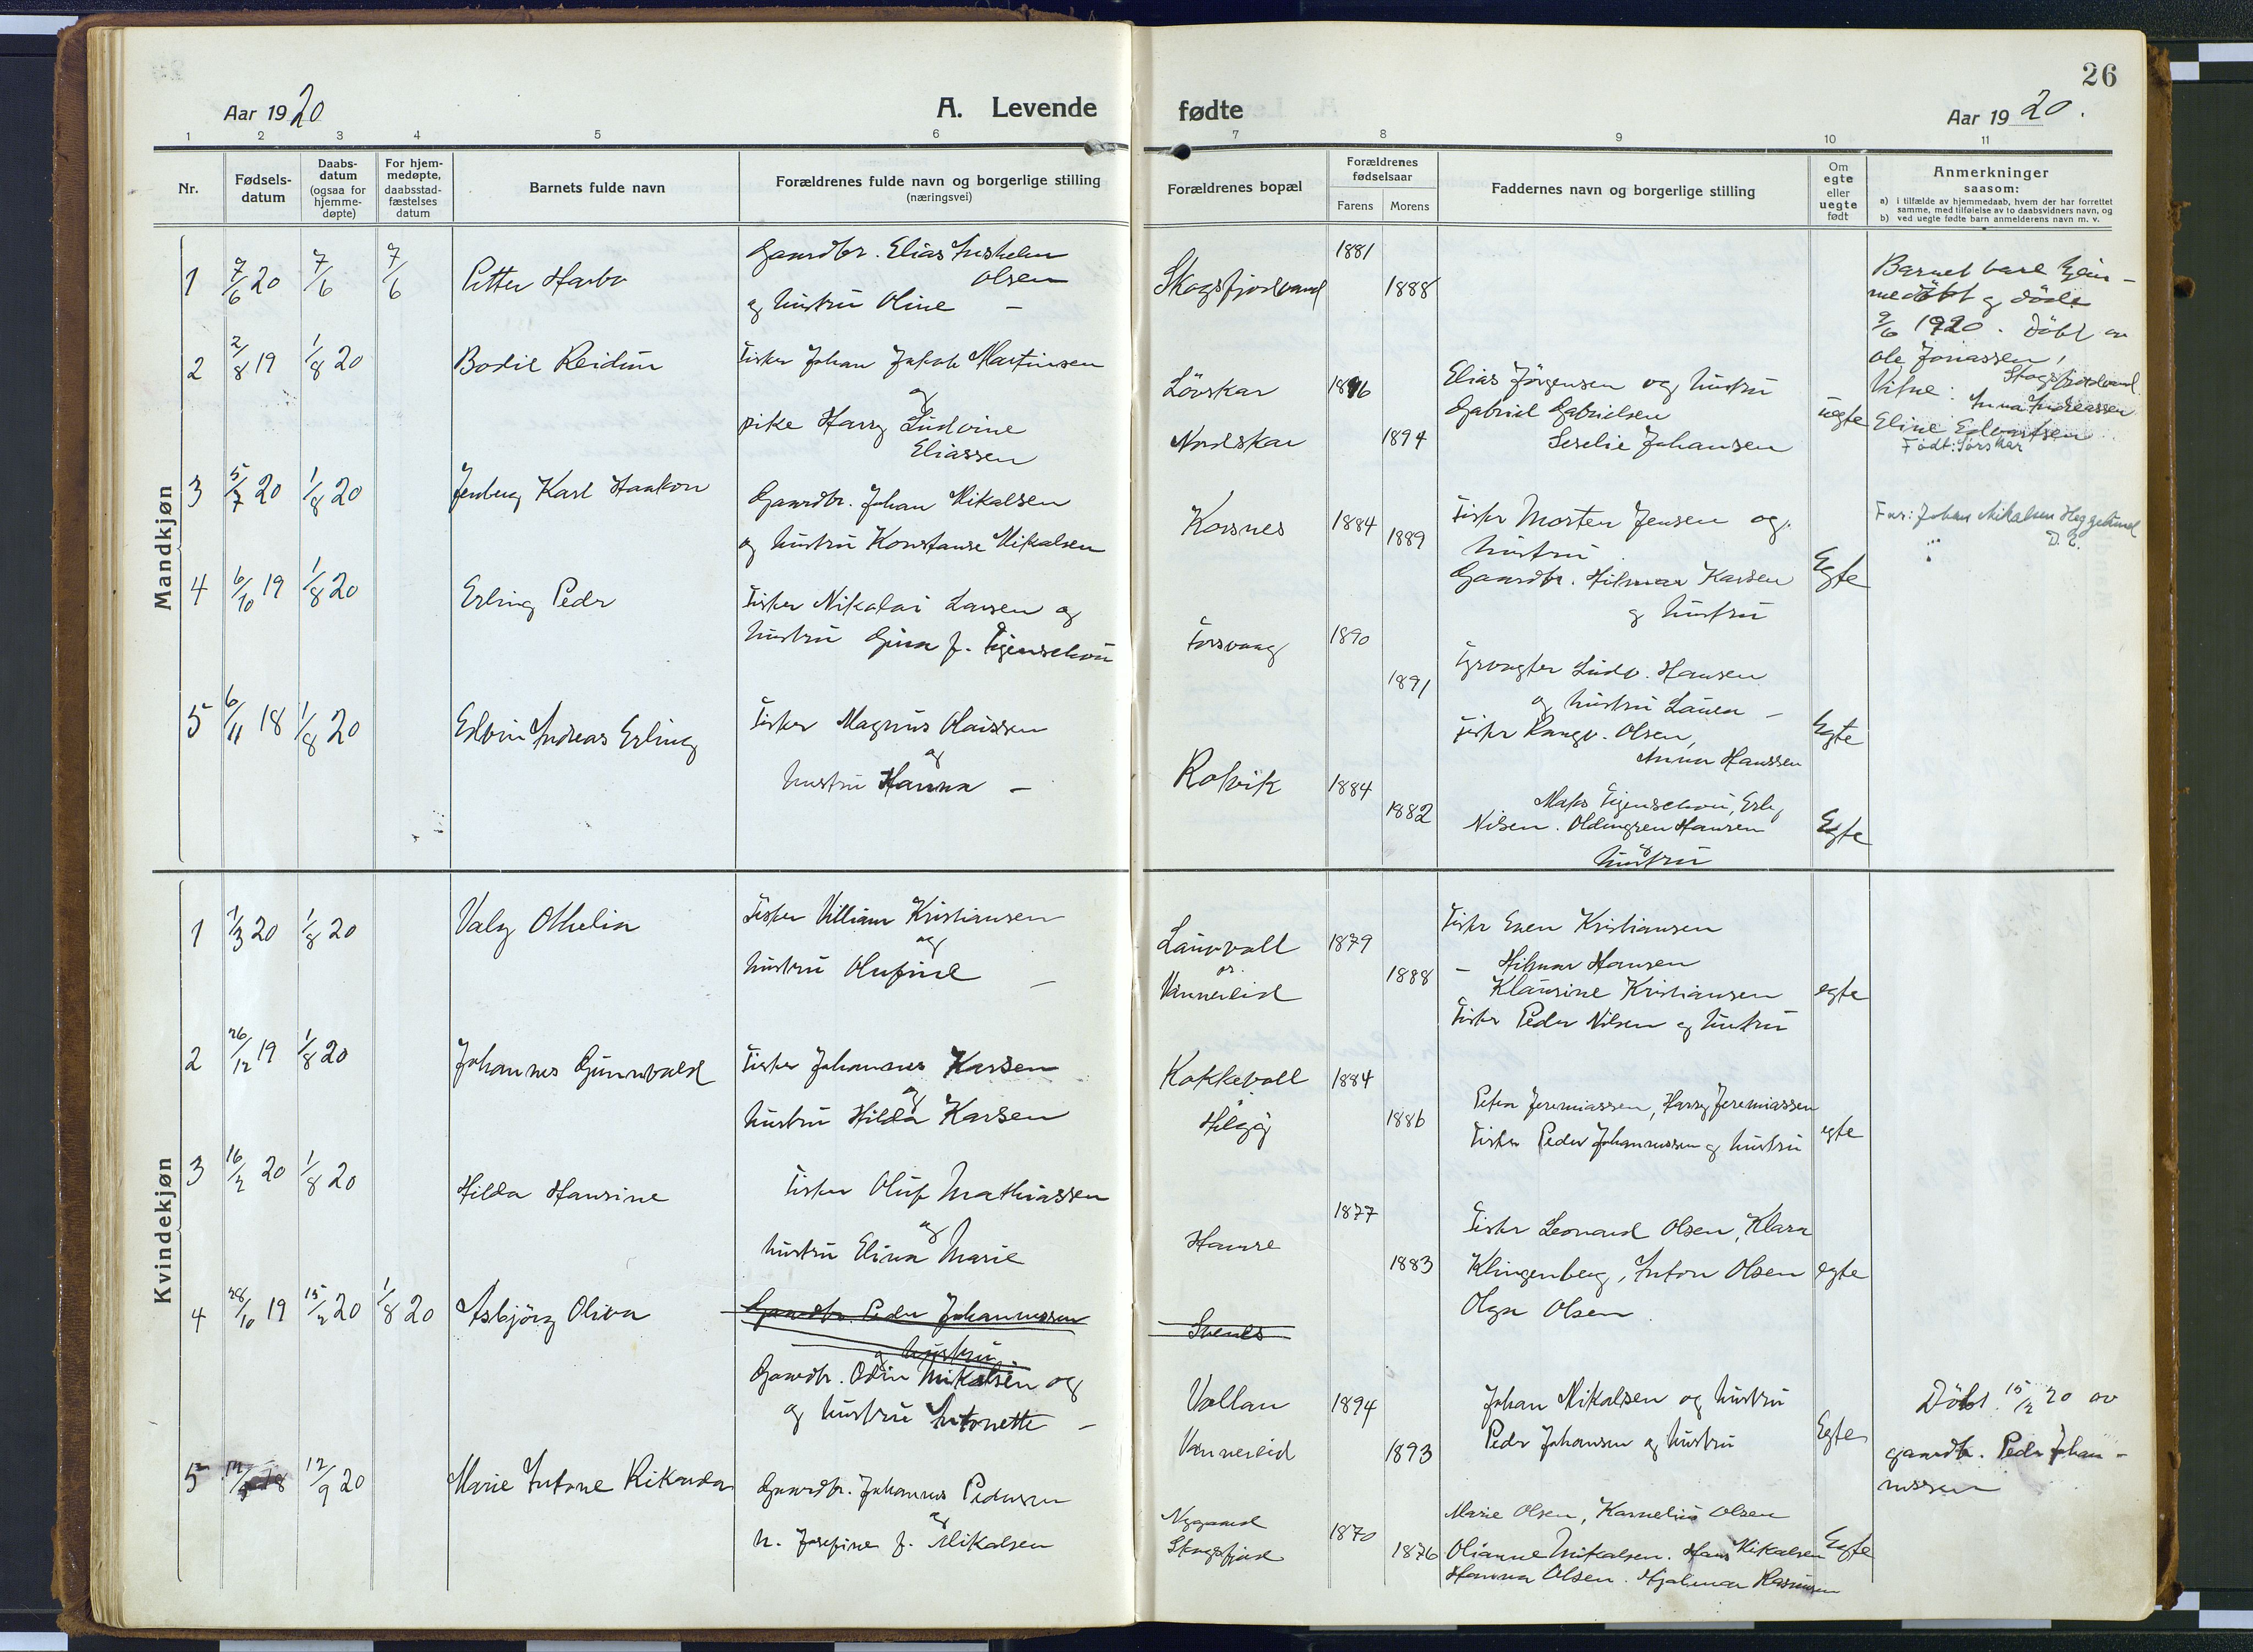 26
Aar 1920
A. Levende
fødte
Aar 1920.
1 2 3 4 5 6 7 8 9 10 11
Nr.
Fødsels-
datum
Daabs-
datum
(ogsaa for
hjemme-
døpte)
For hjem-
medøpte,
daabsstad-
fæstelses
datum
Barnets fulde navn
Forældrenes fulde navn og borgerlige stilling
(næringsvei)
Forældrenes bopæl
Forældrenes
fødselsaar
Farens
Morens
Faddernes navn og borgerlige stilling
Om
egte
eller
uegte
født
Anmerkninger
saasom:
a) i tilfælde av hjemmedaab, hvem der har forrettet
samme, med tilføielse av to daabsvidners navn, og
b) ved uegte fødte barn anmelderens navn m. v.
Mandkjøn
1 7/6 20 7/6 7/6 Petter Harbo
Gaardbr. Elias
Olsen
og hustru Oline –
Skogsfjordvand 1881 1888
Barnet bare hjem-
medöbt og döde
9/6 1920. Döbt av
Ole Jonassen,
Skogsfjordvand
Vitne: Anna Andreassen
Eline Edvartsen
2 2/8 19 1/8 20 Bodil Reidun
Fisker Johan Jakob Martinsen
og
pike Harry Ludvine
Eliassen
Lövskar 1896
Nordskar 1894
Elias Jörgensen og hustru
Gabriel Gabrielsen
Selelie Johansen
uegte
Født: Sørskar
3 5/7 20 1/8 20 Jenberg Karl Haakon
Gaardbr. Johan Mikalsen
og hustru Konstanse Mikalsen
Korsnes 1884 1889
Fisker Morten Jensen og
hustru
Gaardbr. Hilmar Karsen
og hustru
Egte
Far: Johan Mikalsen Heggelund
D. E.
4 6/10 19 1/8 20 Erling Peder
Fisker Nikolai Larsen og
hustru Gina f. Figenschou
Torsvaag 1890 1891
Fyrvogter Ludv. Hansen
og hustru Laura –
Fisker Rangv. Olsen,
Anna Hanssen
Egte
5 6/11 18 1/8 20 Edvin Andreas Erling
Fisker Magnus Olaissen
og
hustru Hanna –
Rotvik 1884 1882
Maks Figenschou, Erling
Nilsen. Oldingsen Hansen
og
hustru
Egte
Kvindekjøn
1 1/3 20 1/8 20 Valy Othelia
Fisker Villiam Kristiansen
og
hustru Olufine –
Laurvoll
pr.
Vannereid
1879 1888
Fisker Even Kristiansen
– Hilmar Hansen
Klausine Kristiansen
Fisker Peder Nilsen og hustru
egte
2 26/12 19 1/8 20 Johannes Gunnvald
Fisker Johannes Karsen
og
hustru Hilda Karsen
Kokkevoll
Helgöy
1884 1886
Petra Jeremiassen, Harry Jeremiassen
Fisker Peder Johannessen og hustru
egte
3 16/2 20 1/8 20 Hilda Hansine
Fisker Oluf Mathiassen
og
hustru Elina Marie
Hamre 1877 1883
Fisker Leonard Olsen, Klara
Klingenberg, Anton Olsen
Olga Olsen
egte
4 28/10 19 15/2 20 1/8 20 Asbjörg Oliva
Gaardbr. Peder Johannessen
og hustru
Gaardbr. Odin Mikalsen og
og hustru Antonette –
Svenes
Vollan
Vannereid
1894 1893
Johan Mikalsen og hustru
Peder Johansen og hustru
Egte
Döbt 15/12 20 av
gaardbr. Peder Johan-
nessen
5 12/9 20 Marie Antone Rikarda
Gaardbr. Johannes Pedersen
og
h. Josefine f. Mikalsen
Nygaard
Skogsfjord
1870 1876
Marie Olsen, Kornelius Olsen
Olianne Mikalsen. Hans Mikalsen
Hanna Olsen. Hjalmar Rasmussen
Egte